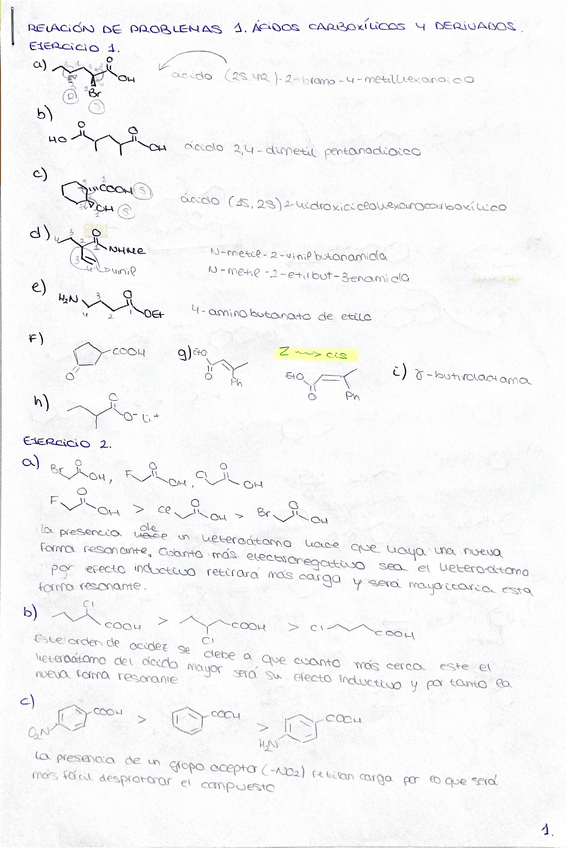 RELACIÓN DE PROBLEMAS 1. ÁCIDOS CARBOXÍLICOS Y DERIVADOS.
EJERCICIO 1.
a) OH Br ácido (2S,4R)-2-bromo-4-metilhexanoico
b) HO O O OH ácido 2,4-dimetil pentanodioico
c) COOH (S) OH (S) ácido (1S,2S)2-hidroxiciclohexanocarboxílico
d) O NHMe vinil N-metil-2-vinilbutanamida
N-metil-2-etilbut-3enamida
e) H2N O OEt 4-aminobutanato de etilo
F) COOH O g) EtO O Ph Z ~~> cis EtO O Ph i) γ-butirolactama
h) O O- Li+
EJERCICIO 2.
a) Br O OH, F O OH, Cl O OH
F O OH > Cl O OH > Br O OH
la presencia de un heteroátomo hace que haya una nueva
forma resonante. Cuanto más electronegativo sea el heteroátomo
por efecto inductivo retirará más carga y será mayoritaria esta
forma resonante.
b) Cl COOH > Cl COOH > Cl COOH
Este orden de acidez se debe a que cuanto más cerca este el
heteroátomo del ácido mayor será su efecto inductivo y por tanto la
nueva forma resonante
c) O2N COOH > COOH > H2N COOH
la presencia de un grupo aceptor (-NO2) retiran carga por lo que será
más fácil desprotonar el compuesto
1.